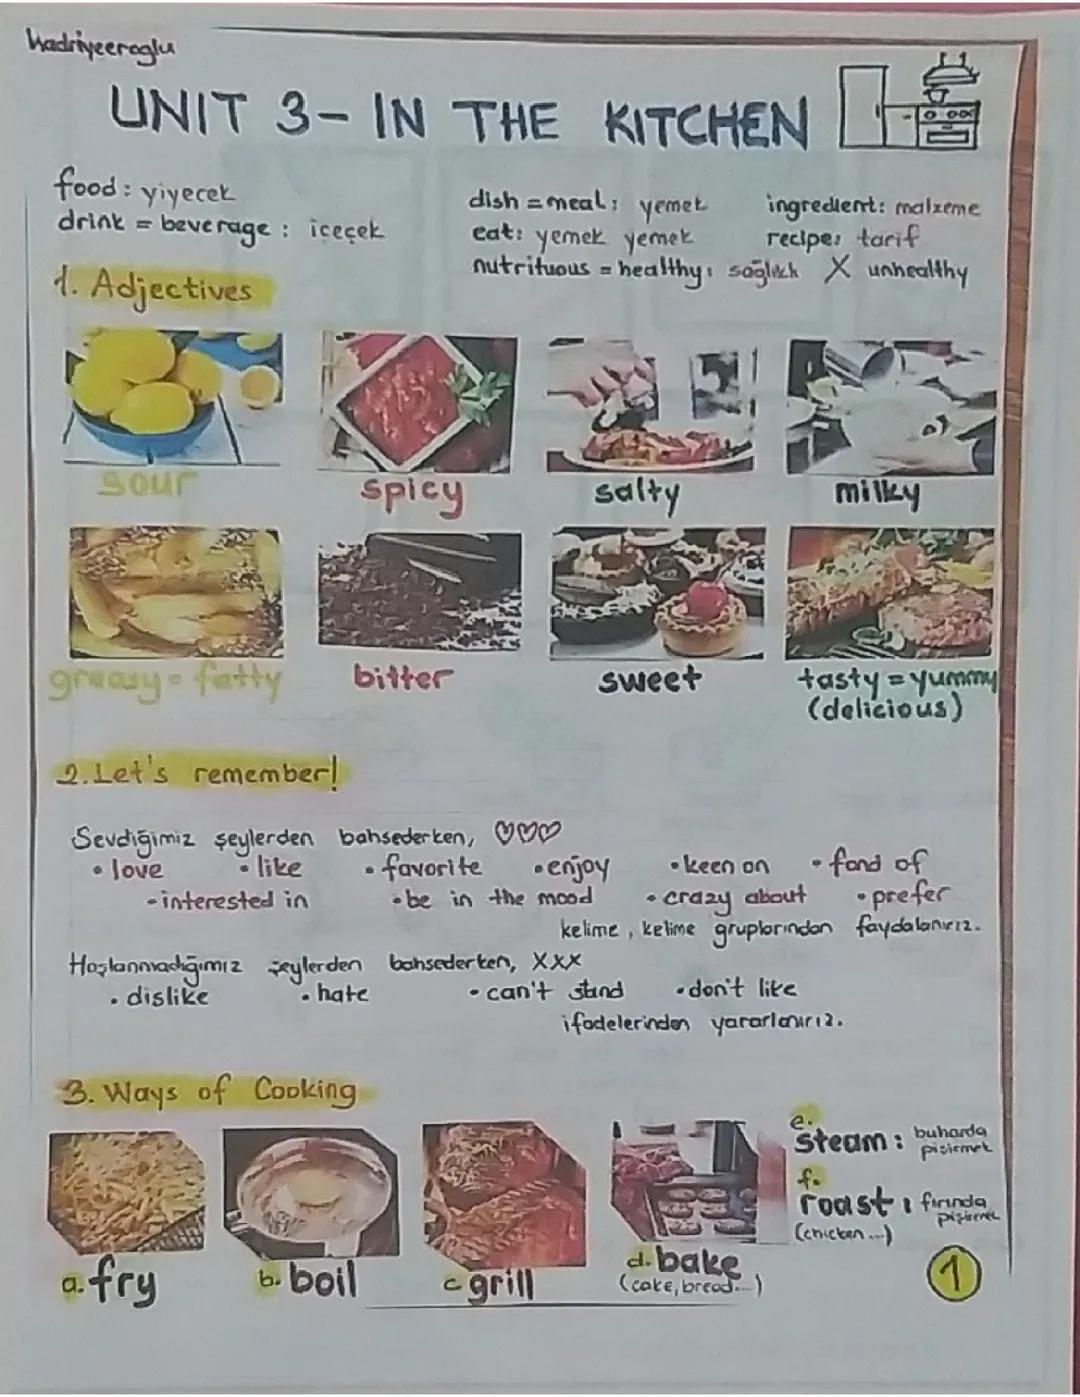 hadriyeeroglu
UNIT 3- IN THE KITCHEN
food: yiyecek
drink = beverage : içeçek
dish = meal: yemek
eat: yemek yemek
nutrituous = healthy: sağlıklı X unhealthy
ingredient: malzeme
recipe: tarif
1. Adjectives
sour
spicy
salty
milky
greasy = fatty
bitter
sweet
tasty = yummy
(delicious)
2. Let's remember!
Sevdiğimiz şeylerden bahsederken, ♡♡♡
• love • like • favorite • enjoy • keen on • fond of
• interested in • be in the mood • crazy about • prefer
kelime, kelime gruplarından faydalanırız.
Hoşlanmadığımız şeylerden bahsederken, XXX
• dislike • hate • can't stand • don't like
ifadelerinden yararlanırız.
3. Ways of Cooking
a. fry
b. boil
c grill
d. bake
(cake, bread...)
e.
steam: buharda
pişirmek
f.
roast: fırında
pişirmek
(chicken...)
1